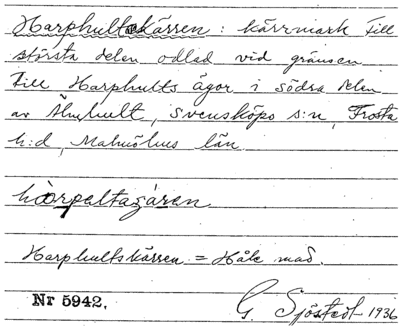 Harphultskärren : kärrmark till
största delen odlad vid gränsen
till Harphults ägor i södra delen
av Älmhult, Svensköps s:n, Frosta
h:d, Malmöhus län.
Harphultskärren = Håle mad.
Nr 5942.
G. Sjöstedt 1936